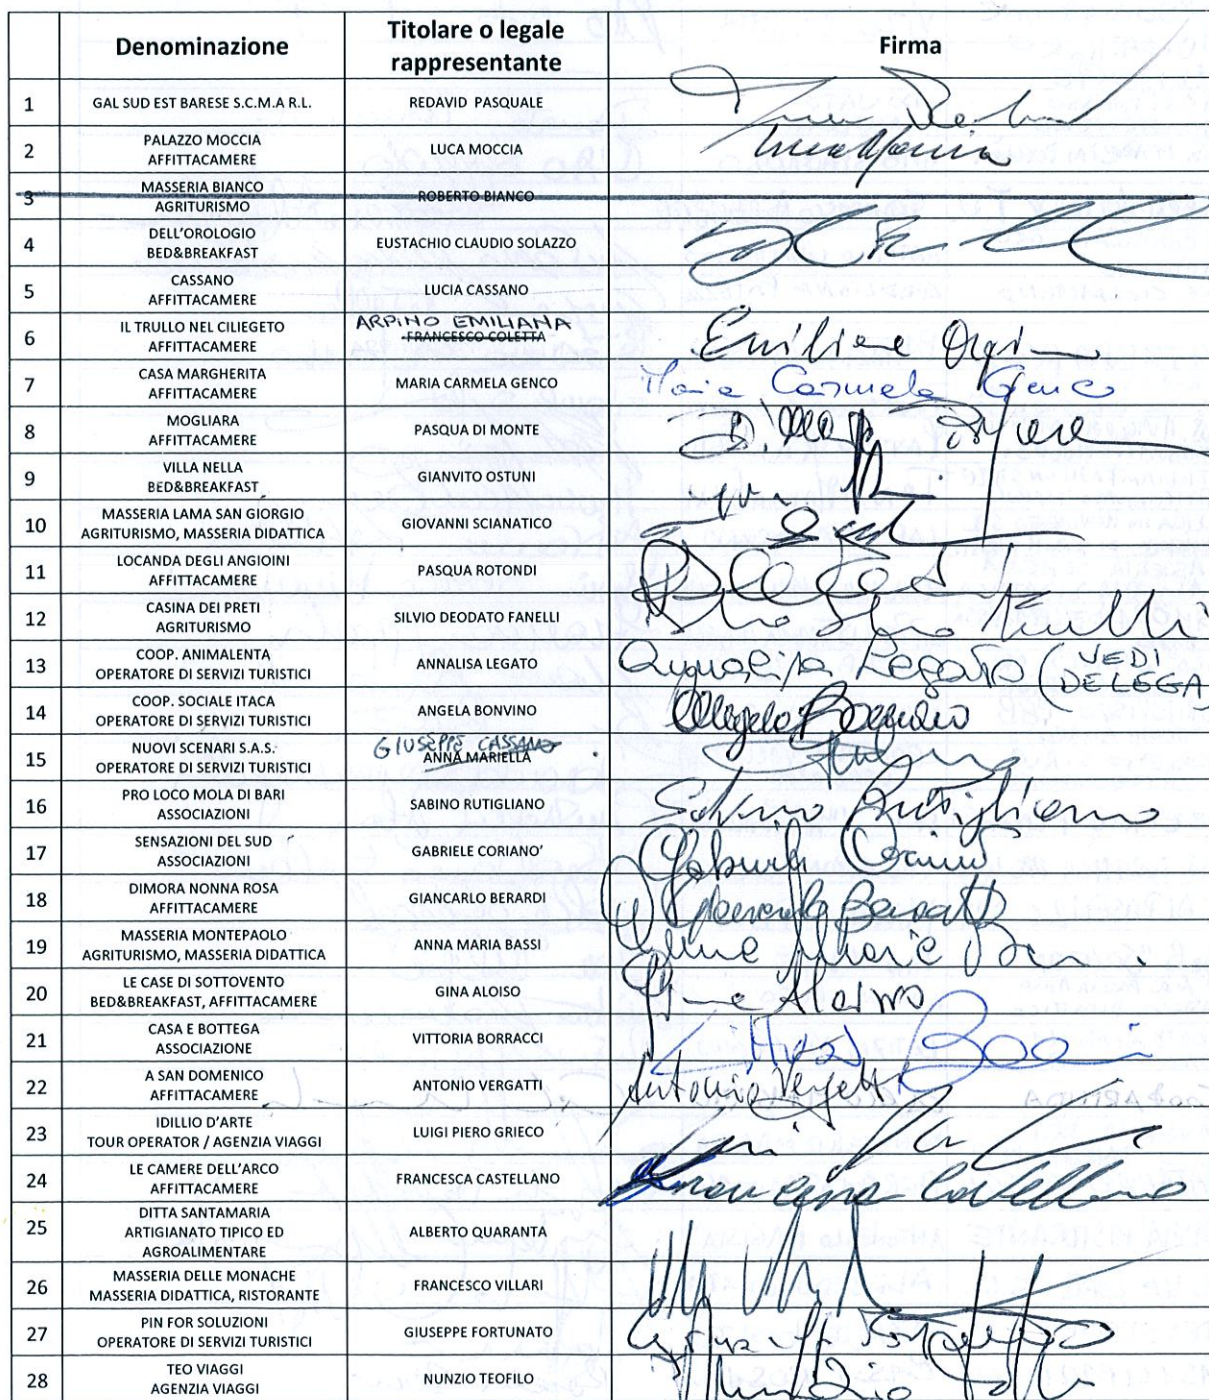 Denominazione
Titolare o legale
rappresentante
Firma
1 GAL SUD EST BARESE S.C.M.A R.L. REDAVID PASQUALE
2 PALAZZO MOCCIA
AFFITTACAMERE LUCA MOCCIA
3 MASSERIA BIANCO
AGRITURISMO ROBERTO BIANCO
4 DELL'OROLOGIO
BED&BREAKFAST EUSTACHIO CLAUDIO SOLAZZO
5 CASSANO
AFFITTACAMERE LUCIA CASSANO
6 IL TRULLO NEL CILIEGETO
AFFITTACAMERE ARPINO EMILIANA
FRANCESCO COLETTA
7 CASA MARGHERITA
AFFITTACAMERE MARIA CARMELA GENCO Maria Carmela Genco
8 MOGLIARA
AFFITTACAMERE PASQUA DI MONTE
9 VILLA NELLA
BED&BREAKFAST GIANVITO OSTUNI
10 MASSERIA LAMA SAN GIORGIO
AGRITURISMO, MASSERIA DIDATTICA GIOVANNI SCIANATICO
11 LOCANDA DEGLI ANGIOINI
AFFITTACAMERE PASQUA ROTONDI
12 CASINA DEI PRETI
AGRITURISMO SILVIO DEODATO FANELLI
13 COOP. ANIMALENTA
OPERATORE DI SERVIZI TURISTICI ANNALISA LEGATO Annalisa Legato (VEDI
DELEGA
14 COOP. SOCIALE ITACA
OPERATORE DI SERVIZI TURISTICI ANGELA BONVINO Angela Bonvino
15 NUOVI SCENARI S.A.S.
OPERATORE DI SERVIZI TURISTICI GIUSEPPE CASSANO
ANNA MARIELLA
16 PRO LOCO MOLA DI BARI
ASSOCIAZIONI SABINO RUTIGLIANO Sabino Rutigliano
17 SENSAZIONI DEL SUD
ASSOCIAZIONI GABRIELE CORIANO'
18 DIMORA NONNA ROSA
AFFITTACAMERE GIANCARLO BERARDI
19 MASSERIA MONTEPAOLO
AGRITURISMO, MASSERIA DIDATTICA ANNA MARIA BASSI
20 LE CASE DI SOTTOVENTO
BED&BREAKFAST, AFFITTACAMERE GINA ALOISO Gina Aloiso
21 CASA E BOTTEGA
ASSOCIAZIONE VITTORIA BORRACCI
22 A SAN DOMENICO
AFFITTACAMERE ANTONIO VERGATTI Antonio Vergatti
23 IDILLIO D'ARTE
TOUR OPERATOR / AGENZIA VIAGGI LUIGI PIERO GRIECO
24 LE CAMERE DELL'ARCO
AFFITTACAMERE FRANCESCA CASTELLANO Francesca Castellano
25 DITTA SANTAMARIA
ARTIGIANATO TIPICO ED
AGROALIMENTARE ALBERTO QUARANTA
26 MASSERIA DELLE MONACHE
MASSERIA DIDATTICA, RISTORANTE FRANCESCO VILLARI
27 PIN FOR SOLUZIONI
OPERATORE DI SERVIZI TURISTICI GIUSEPPE FORTUNATO
28 TEO VIAGGI
AGENZIA VIAGGI NUNZIO TEOFILO